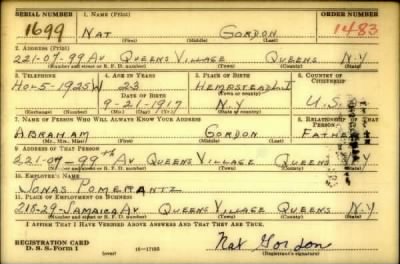 SERIAL NUMBER 1. NAME (Print) ORDER NUMBER
1699 NAT GORDON 1483
(First) (Middle) (Last)
2. ADDRESS (Print)
221-07-99 AV QUEENS VILLAGE QUEENS N.Y
(Number and street or R. F. D. number) (Town) (County) (State)
3. TELEPHONE 4. AGE IN YEARS 5. PLACE OF BIRTH 6. COUNTRY OF CITIZENSHIP
HO-5-1925W 23 HEMPSTEAD L.I
DATE OF BIRTH (Town or county)
9-21-1917 N.Y U.S.A
(Exchange) (Number) (Mo.) (Day) (Yr.) (State or country)
7. NAME OF PERSON WHO WILL ALWAYS KNOW YOUR ADDRESS 8. RELATIONSHIP OF THAT PERSON
ABRAHAM GORDON FATHER
(Mr., Mrs., Miss) (First) (Middle) (Last)
9. ADDRESS OF THAT PERSON
221-07-99th AV QUEENS VILLAGE QUEENS N.Y
(Number and street or R. F. D. number) (Town) (County) (State)
10. EMPLOYER'S NAME
JONAS POMERANTZ
11. PLACE OF EMPLOYMENT OR BUSINESS
218-29-JAMAICA AV QUEENS VILLAGE QUEENS N.Y
(Number and street or R. F. D. number) (Town) (County) (State)
I AFFIRM THAT I HAVE VERIFIED ABOVE ANSWERS AND THAT THEY ARE TRUE.
REGISTRATION CARD
D. S. S. Form 1 (over) 16-17105 Nat Gordon
(Registrant's signature)